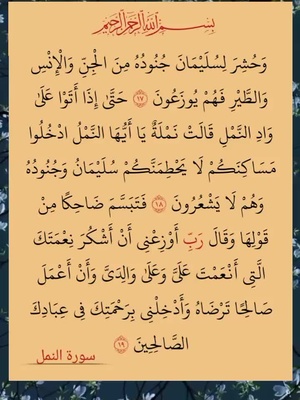 بِسْمِ اللَّهِ الرَّحْمَٰنِ الرَّحِيمِ
وَحُشِرَ لِسُلَيْمَانَ جُنُودُهُ مِنَ الْجِنِّ وَالْإِنْسِ
وَالطَّيْرِ فَهُمْ يُوزَعُونَ ١٧ حَتَّى إِذَا أَتَوْا عَلَى
وَادِ النَّمْلِ قَالَتْ نَمْلَةٌ يَا أَيُّهَا النَّمْلُ ادْخُلُوا
مَسَاكِنَكُمْ لَا يَحْطِمَنَّكُمْ سُلَيْمَانُ وَجُنُودُهُ
وَهُمْ لَا يَشْعُرُونَ ١٨ فَتَبَسَّمَ ضَاحِكًا مِنْ
قَوْلِهَا وَقَالَ رَبِّ أَوْزِعْنِي أَنْ أَشْكُرَ نِعْمَتَكَ
الَّتِي أَنْعَمْتَ عَلَيَّ وَعَلَى وَالِدَيَّ وَأَنْ أَعْمَلَ
صَالِحًا تَرْضَاهُ وَأَدْخِلْنِي بِرَحْمَتِكَ فِي عِبَادِكَ
الصَّالِحِينَ ١٩
سورة النمل